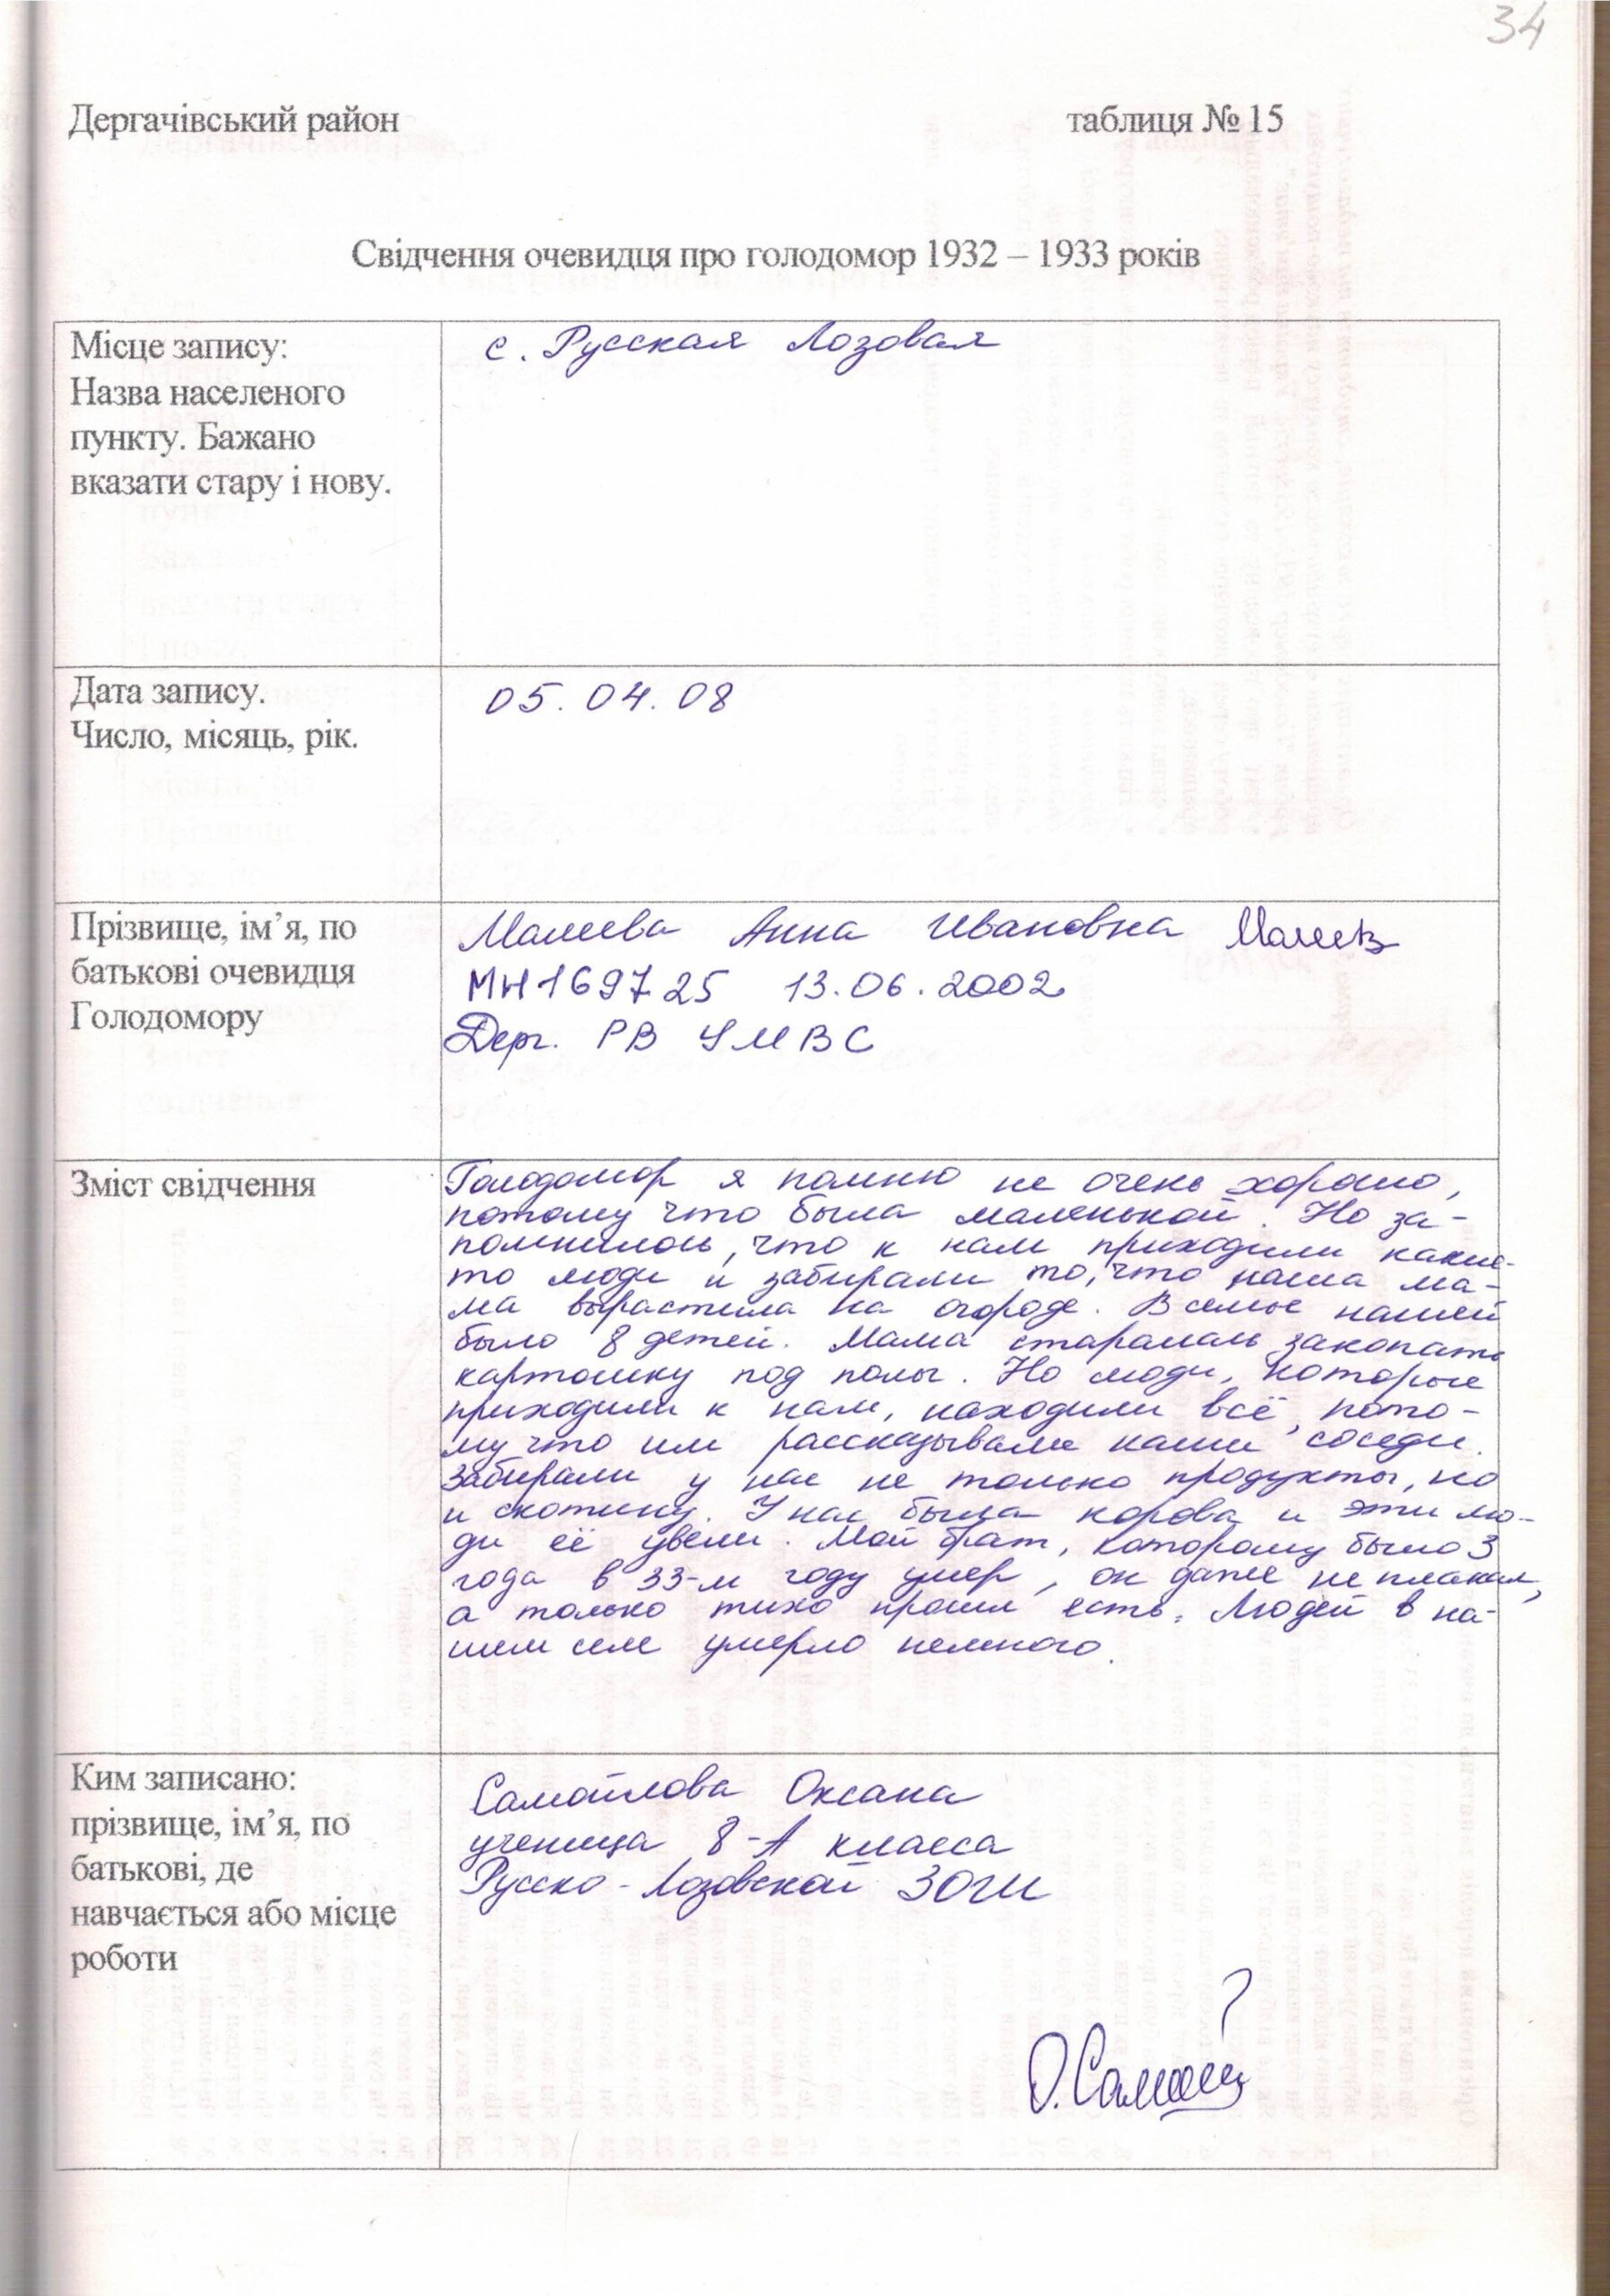 34
Дергачівський район таблиця № 15
Свідчення очевидця про голодомор 1932 – 1933 років
Місце запису:
Назва населеного
пункту. Бажано
вказати стару і нову.
с. Русская Лозовая
Дата запису.
Число, місяць, рік.
05.04.08
Прізвище, ім’я, по
батькові очевидця
Голодомору
Малеева Анна Ивановна
МН169725 13.06.2002
Дерг. РВ УМВС
Зміст свідчення
Голодомор я помню не очень хорошо,
потому что была маленькой. Но за-
помнилось, что к нам приходили какие-
то люди и забирали то, что наша ма-
ма вырастила на огороде. В семье нашей
было 8 детей. Мама старалась закопать
картошку под полы. Но люди, которые
приходили к нам, находили всё, пото-
му что им рассказывали наши соседи.
Забирали у нас не только продукты, но
и скотину. У нас была корова и эти лю-
ди её увели. Мой брат, которому было 3
года в 33-м году умер, он даже не плакал,
а только тихо просил есть. Людей в на-
шем селе умерло немного.
Ким записано:
прізвище, ім’я, по
батькові, де
навчається або місце
роботи
Самойлова Оксана
ученица 8-А класса
Русско-Лозовской ЗОШ